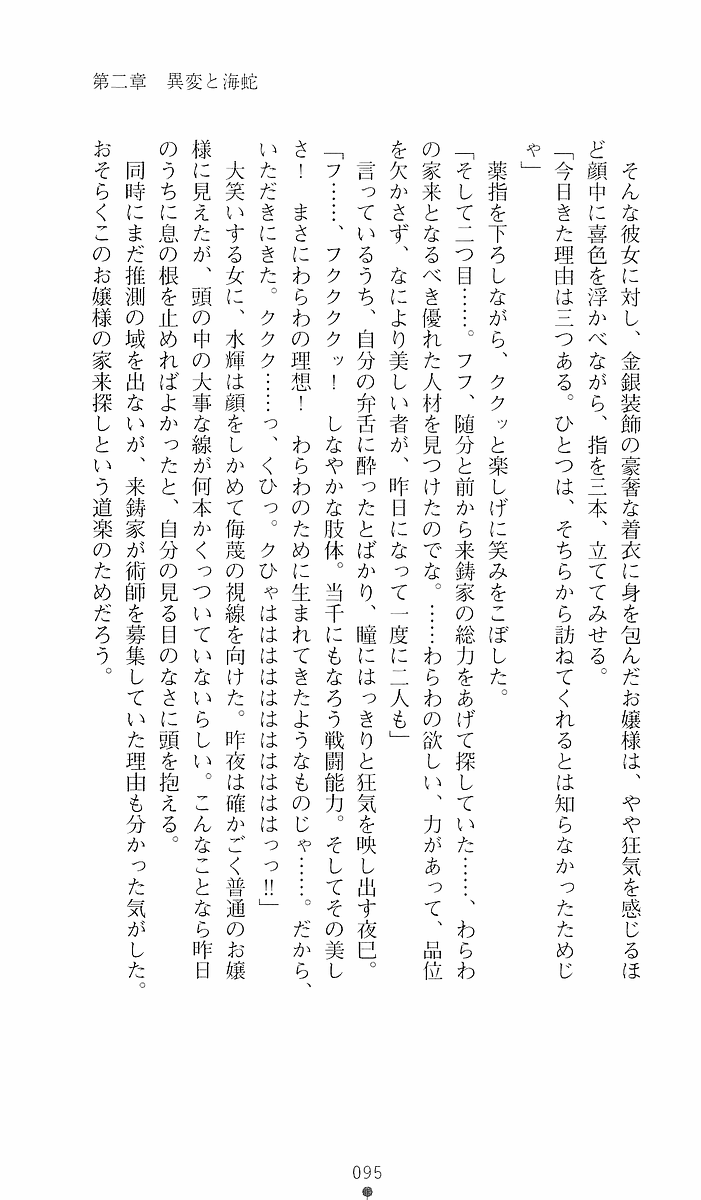 第二章　異変と海蛇
　そんな彼女に対し、金銀装飾の豪奢な着衣に身を包んだお嬢様は、やや狂気を感じるほ
ど顔中に喜色を浮かべながら、指を三本、立ててみせる。
「今日きた理由は三つある。ひとつは、そちらから訪ねてくれるとは知らなかったためじ
ゃ」
　薬指を下ろしながら、ククッと楽しげに笑みをこぼした。
「そして二つ目……。フフ、随分と前から来鋳家の総力をあげて探していた……、わらわ
の家来となるべき優れた人材を見つけたのでな。……わらわの欲しい、力があって、品位
を欠かさず、なにより美しい者が、昨日になって一度に二人も」
　言っているうち、自分の弁舌に酔ったとばかり、瞳にはっきりと狂気を映し出す夜巳。
「フ……、フククククッ！　しなやかな肢体。当千にもなろう戦闘能力。そしてその美し
さ！　まさにわらわの理想！　わらわのために生まれてきたようなものじゃ……。だから、
いただきにきた。ククク……っ、くひっ。クひゃはははははははははははっっ!!」
　大笑いする女に、水輝は顔をしかめて侮蔑の視線を向けた。昨夜は確かごく普通のお嬢
様に見えたが、頭の中の大事な線が何本かくっついていないらしい。こんなことなら昨日
のうちに息の根を止めればよかったと、自分の見る目のなさに頭を抱える。
　同時にまだ推測の域を出ないが、来鋳家が術師を募集していた理由も分かった気がした。
おそらくこのお嬢様の家来探しという道楽のためだろう。
095